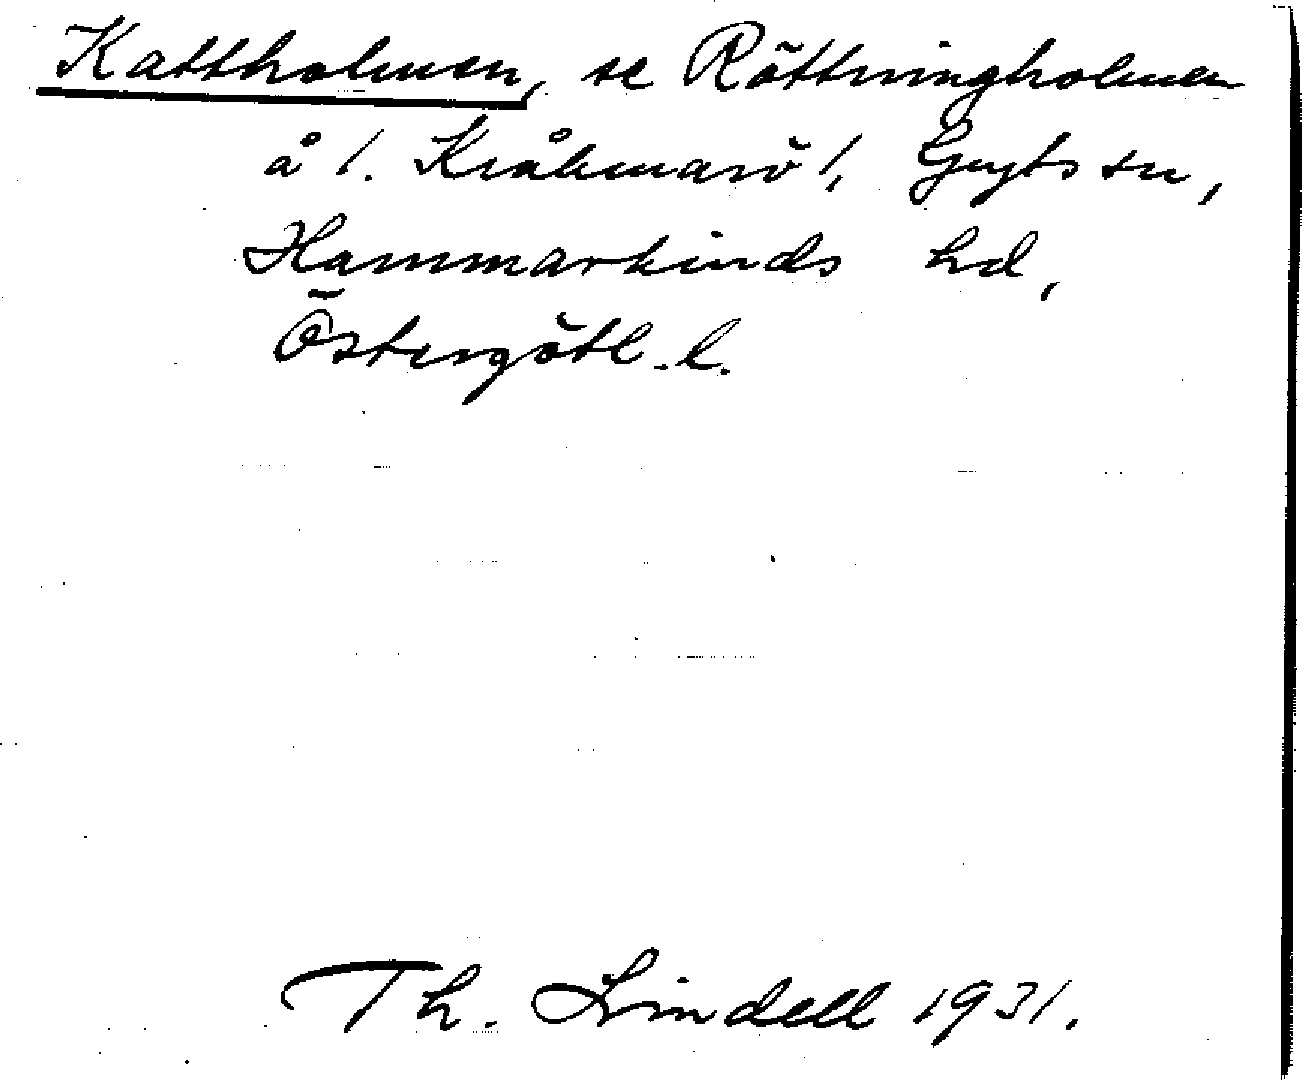 Kattholmen, se Röttningholmen
å /. Kråkmarö /, Gryts sn,
Hammarkinds hd,
Östergötl. l.
Th. Lindell 1931.